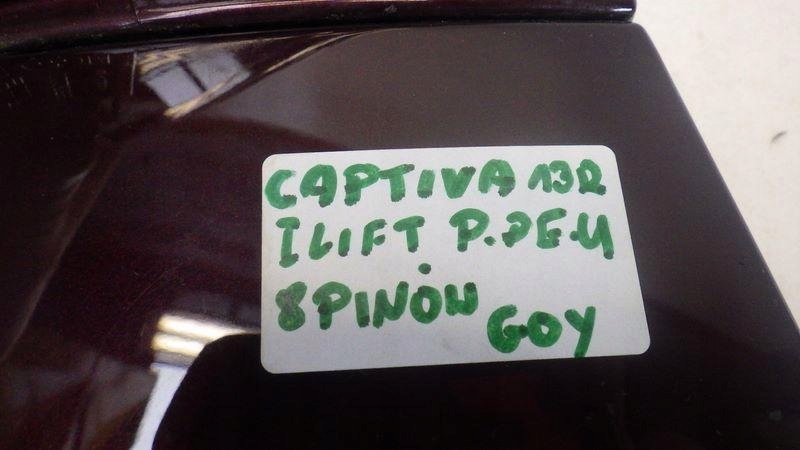 CAPTIVA 13R
I LIFT P.
8 PINÓW
GOY